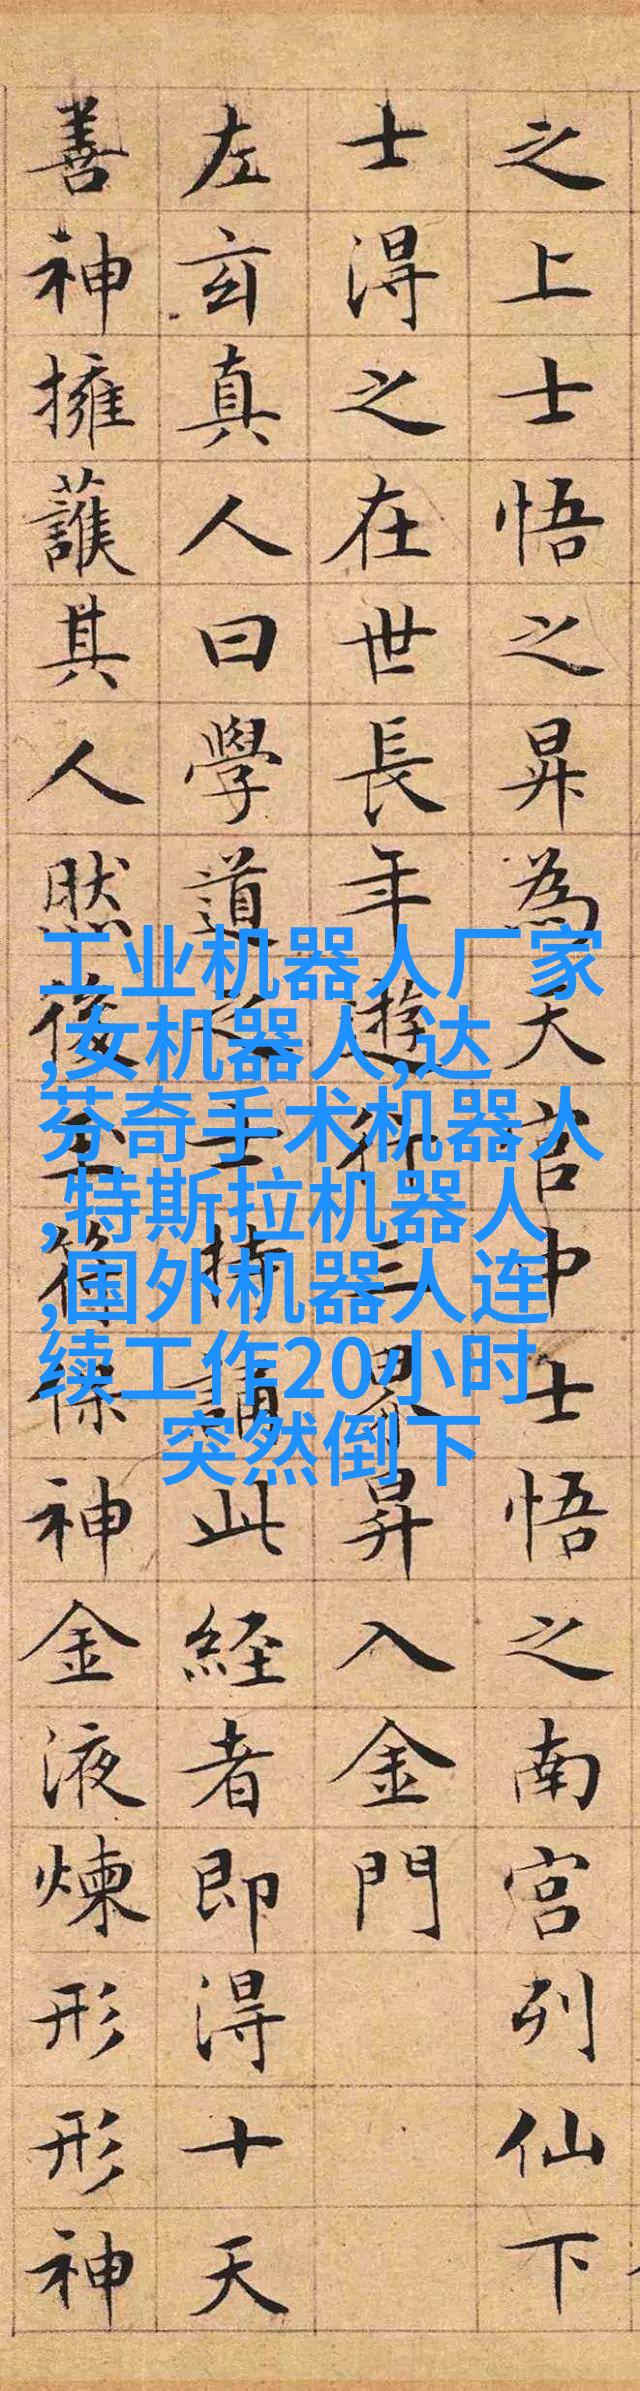 之上士悟之昇為天官中士悟之南宮列仙下
士得之在世長年遊行三界昇入金門
左玄真人曰學道之士持誦此經者即得十天
善神擁護其人然後玉符保神金液煉形形神
工业机器人厂家
,女机器人,达
芬奇手术机器人
,特斯拉机器人
,国外机器人连
续工作20小时
突然倒下